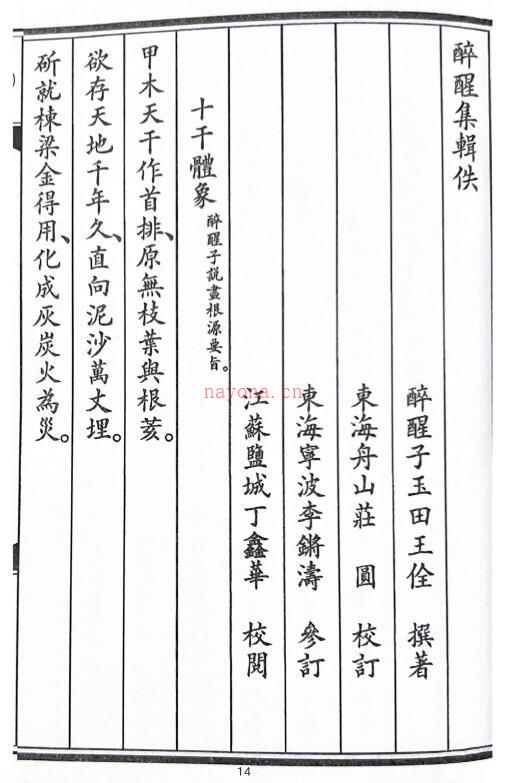 醉醒集輯佚
醉醒子玉田王佺　撰著
東海舟山莊　圓　校訂
東海寧波李鏘濤　參訂
江蘇鹽城丁鑫華　校閱
十干體象醉醒子説盡根源要旨。
甲木天干作首排、原無枝葉與根荄。
欲存天地千年久、直向泥沙萬丈埋。
斫就棟梁金得用、化成灰炭火為災。
nayona.cn
14